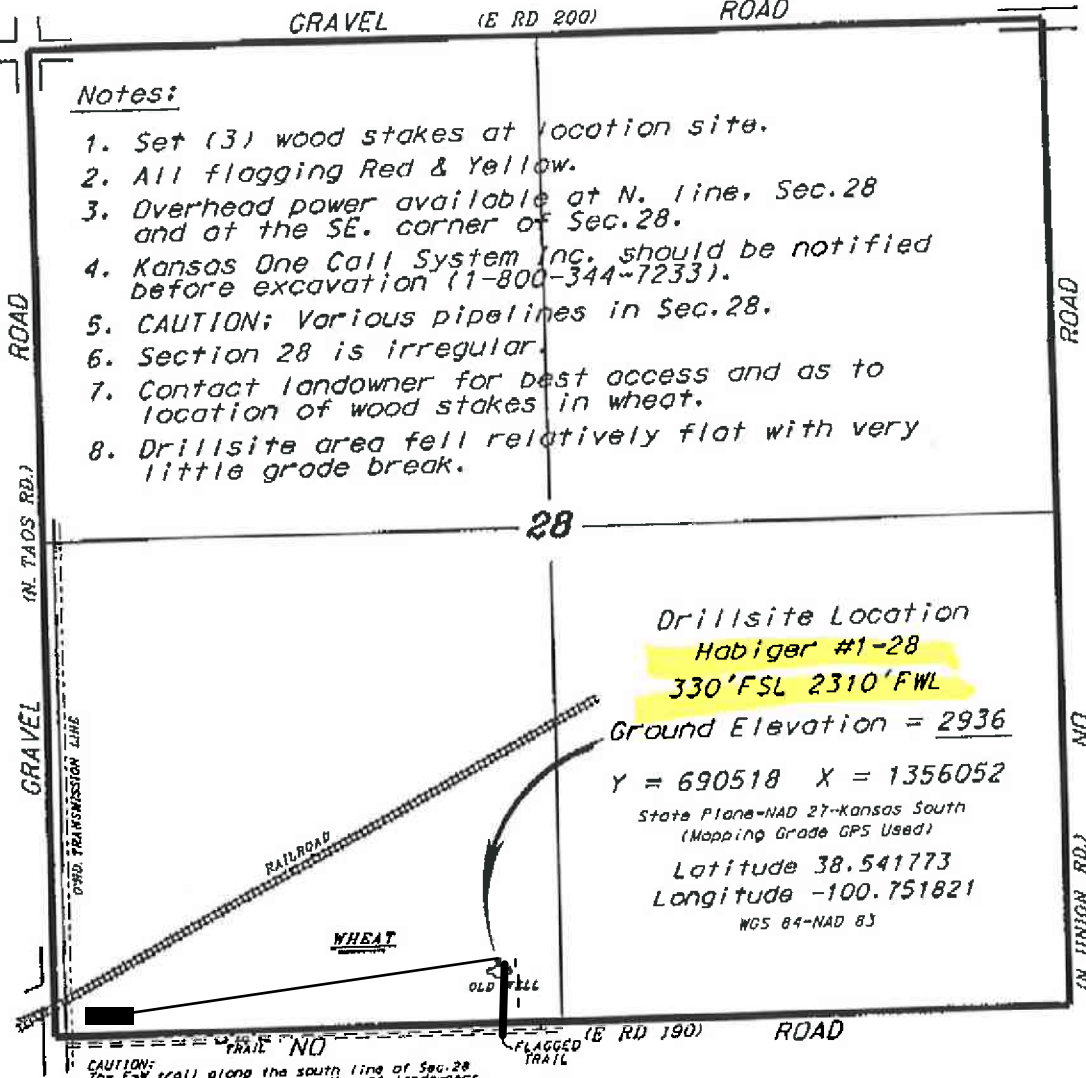 GRAVEL (E RD 200) ROAD
Notes:
1. Set (3) wood stakes at location site.
2. All flagging Red & Yellow.
3. Overhead power available at N. line, Sec.28
and at the SE. corner of Sec.28.
4. Kansas One Call System Inc. should be notified
before excavation (1-800-344-7233).
5. CAUTION: Various pipelines in Sec.28.
6. Section 28 is irregular.
7. Contact landowner for best access and as to
location of wood stakes in wheat.
8. Drillsite area fell relatively flat with very
little grade break.
ROAD
(N. TAOS RD.)
GRAVEL
ROAD
NO
(N UNION RD.)
28
Drillsite Location
Habiger #1-28
330'FSL 2310'FWL
Ground Elevation = 2936
Y = 690518 X = 1356052
State Plane-NAD 27-Kansas South
(Mapping Grade GPS Used)
Latitude 38.541773
Longitude -100.751821
WGS 84-NAD 83
O'HD. TRANSMISSION LINE
RAILROAD
WHEAT
OLD WELL
TRAIL NO (E RD 190) ROAD
FLAGGED
TRAIL
CAUTION:
The E-W trail along the south line of Sec.28